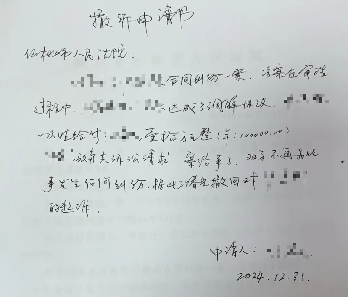 撤诉申请书
人民法院:
合同纠纷一案,该案在审理
过程中 达成了调解协议,
一次性给付 壹拾万元整(¥:100000.00)
放弃其诉讼请求 案结事了,双方不再为此
事发生任何纠纷,据此,请求撤回对
的起诉。
申请人:
2024.12.31.